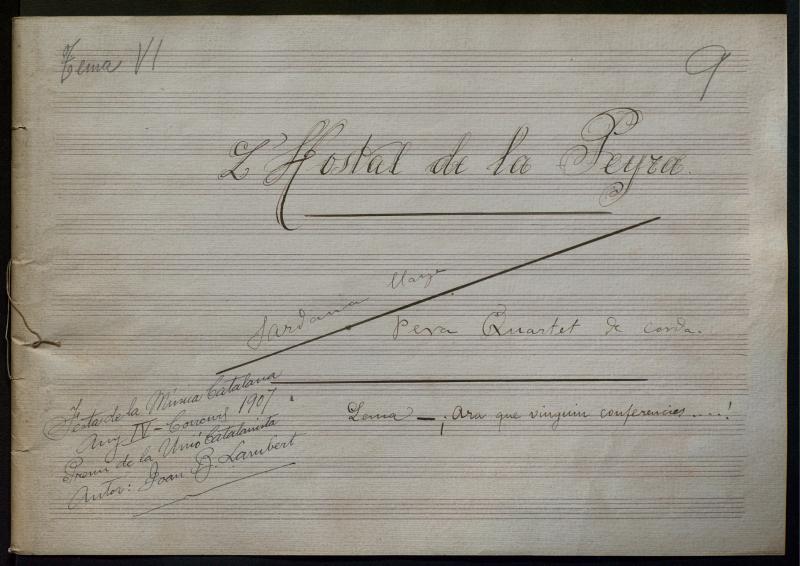 Tema VI
9
L'Hostal de la Peyra.
Sardana llarga
pera Quartet de corda.
Lema — ¡Ara que vinguin conferencies....!
Festa de la Música Catalana
Any IV - Concurs 1907
Premi de la Unió Catalanista
Autor: Joan B. Lambert